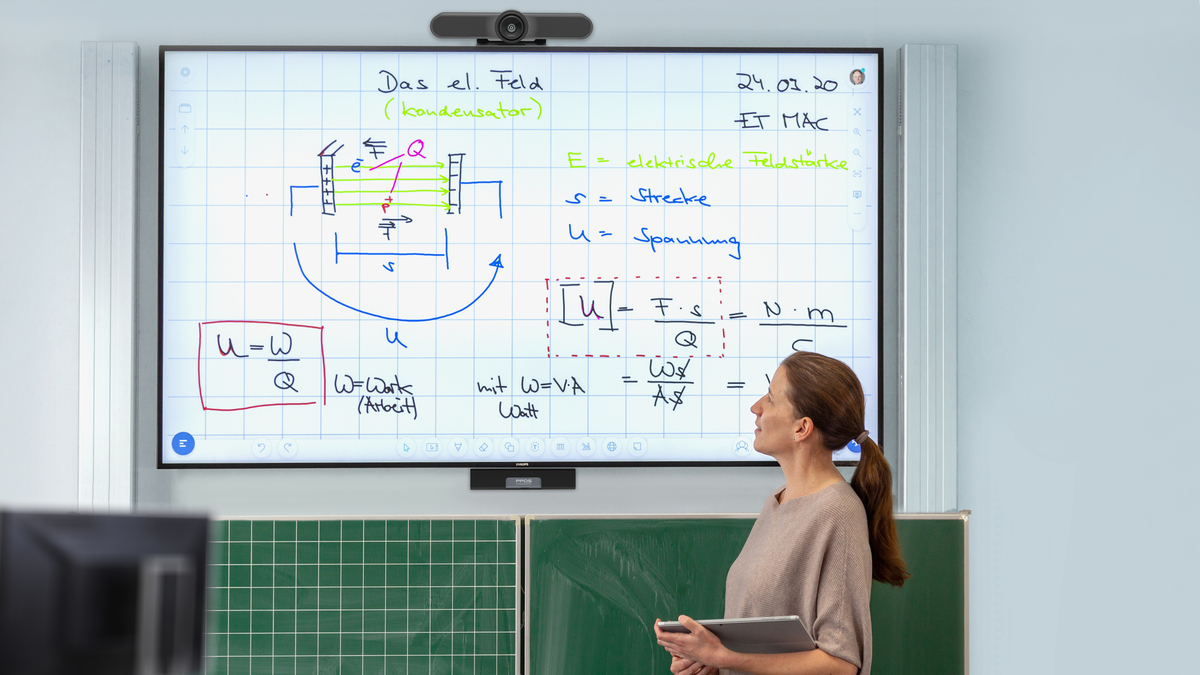 Das el. Feld
(Kondensator)
24.03.20
ET MAC
F
Q
e⁻
p⁺
F
s
U
E = elektrische Feldstärke
s = Strecke
U = Spannung
[U] = F·s / Q = N·m / C
U = W / Q
W = Work
(Arbeit)
mit W = V·A
Watt
= Ws / As =
PHILIPS
PPDS